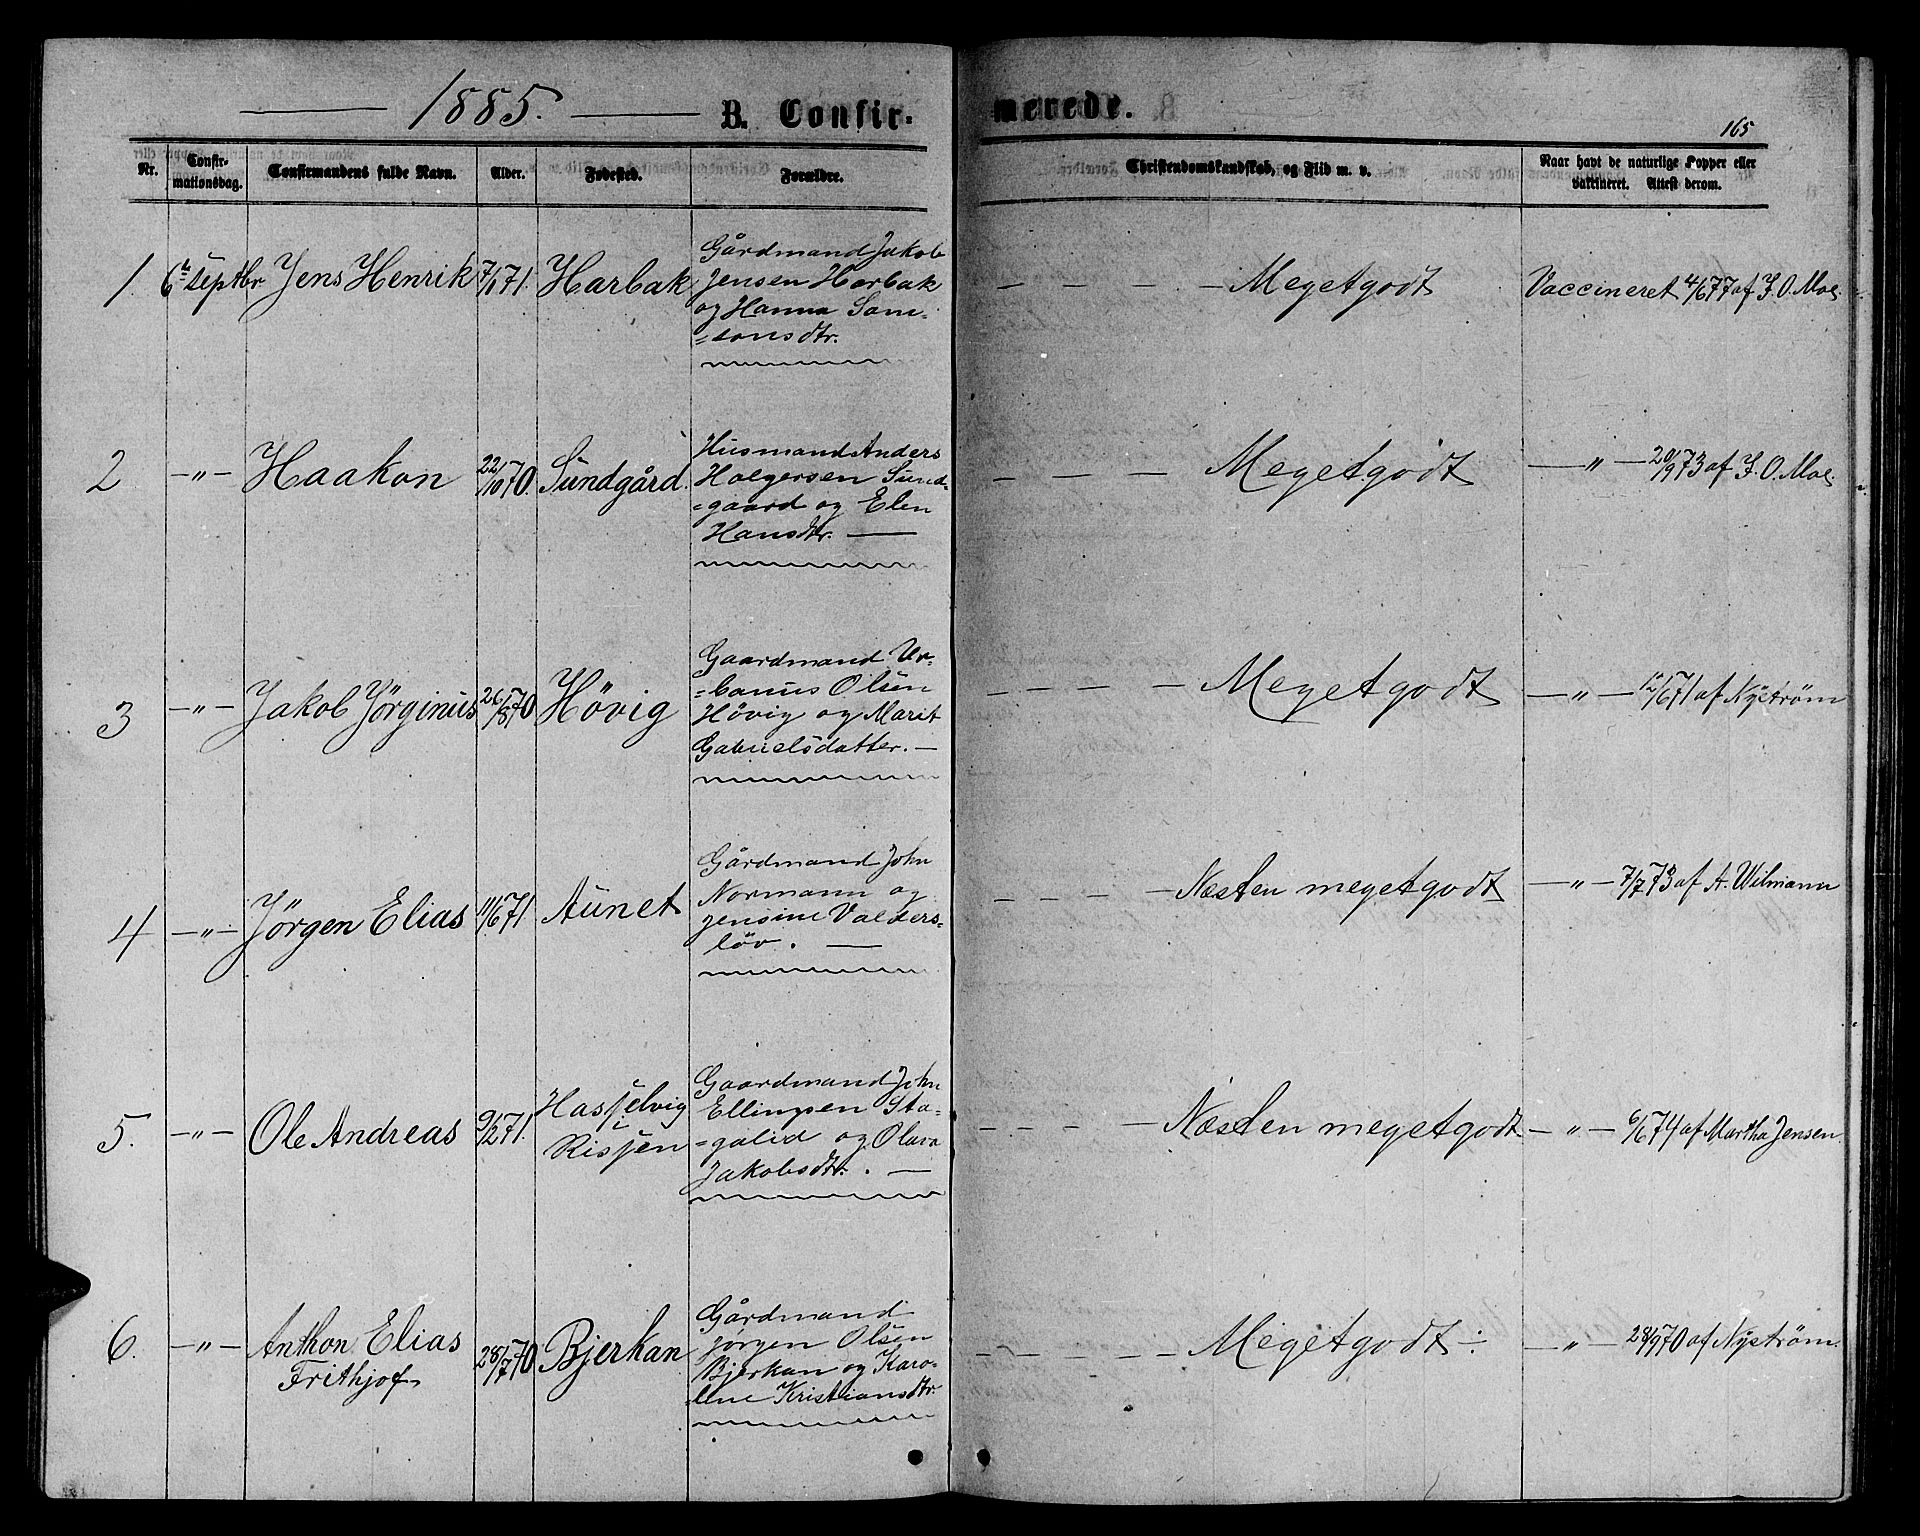 1885. B. Confirmerede.
165
Nr. Confirmationsdag. Confirmandens fulde Navn. Alder. Fødested. Forældre. Christendomskundskab, og Flid m. v. Naar havt de naturlige Kopper eller vaccineret. Attest derom.
1. 6te Septbr Jens Henrik 7/1 71. Harbak
Gårdmand Jakob
Jensen Harbak
og Hanna Sam=
=sonsdtr.
Megetgodt
Vaccineret 4/6 77 af J. O. Moe
2 -"- Haakon 22/10 70. Sundgård.
Husmand Anders
Holgersen Sund=
=gaard og Elen
Hansdtr. —
Megetgodt
-"- 20/9 73 af J. O. Moe.
3 -"- Jakob Jörginus 26/8 70 Hövig
Gaardmand Ur=
=banus Olsen
Hövig og Marit
Gabrielsdatter. —
Megetgodt
-"- 12/6 71 af Nyström
4 -"- Jörgen Elias 11/6 71. Aunet
Gårdmand John
Normann og
Jensine Valders=
löv. —
Næsten megetgodt
-"- 7/7 73 af A. Wilmann
5. -"- Ole Andreas 9/2 71. Hasselvig
Risjen
Gaardmand John
Ellingsen Sta=
=galid og Olava
Jakobsdtr. . —
Næsten megetgodt
-"- 6/6 74 af Martha Jensen.
6. -"- Anthon Elias
Frithjof 28/7 70 Bjerkan
Gårdmand
Jörgen Olsen
Bjerkan og Karo=
=line Kristiansdtr.
Megetgodt ÷
-"- 28/9 70 af Nyström.